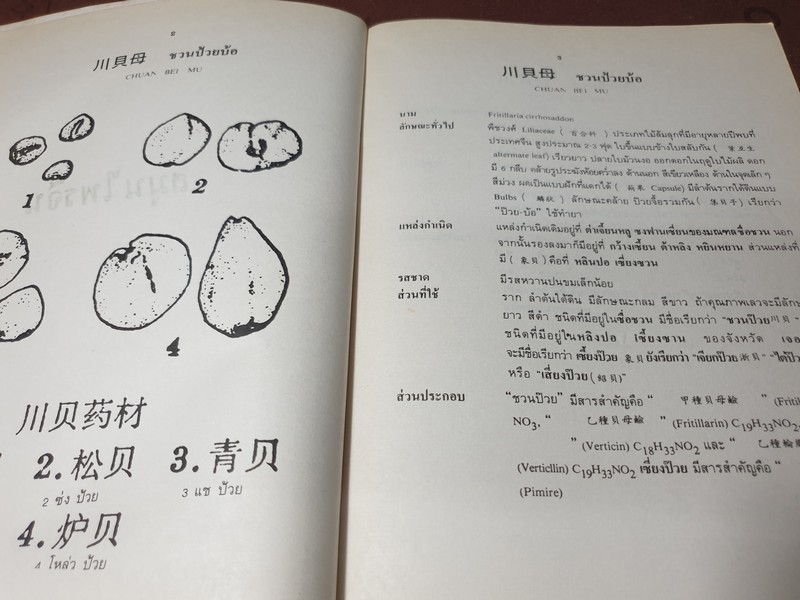 2
川貝母 ชวนป้วยบ้อ
CHUAN BEI MU
1
2
4
川贝药材
2.松贝
3.青贝
2 ซ่ง ป้วย
3 แช ป้วย
4.炉贝
4 โหล่ว ป้วย
3
川貝母 ชวนป้วยบ้อ
CHUAN BEI MU
นาม Fritillaria cirrhosaddon
ลักษณะทั่วไป พืชวงศ์ Liliaceae ( 百合科 ) ประเภทไม้ล้มลุกที่มีอายุหลายปีพบที่
ประเทศจีน สูงประมาณ 2-3 ฟุต ใบขึ้นแบบข้างใบสลับกัน ( 葉互生
altermate leaf) เรียวยาว ปลายใบม้วนงอ ออกดอกในฤดูใบไม้ผลิ ดอก
มี 6 กลีบ คล้ายรูประฆังห้อยคว่ำลง ด้านนอก สีเขียวเหลือง ด้านในจุดเล็ก ๆ
สีม่วง ผลเป็นแบบฝักที่แตกได้ ( 蒴果 Capsule) มีลำต้นรากใต้ดินแบบ
Bulbs ( 鱗狀 ) ลักษณะคล้าย ป้วยจื้อรวมกัน ( 集貝子 ) เรียกว่า
"ป้วย-บ้อ" ใช้ทำยา
แหล่งกำเนิด แหล่งกำเนิดเดิมอยู่ที่ ต๋าเจี้ยนหลู ซงฟานเซี่ยนของมณฑลซื่อชวน นอก
จากนั้นรองลงมาก็มีอยู่ที่ กว้างเซี้ยน ต้าหลิง หยินหยาน ส่วนแหล่งที่
มี ( 象貝 ) คือที่ หลินปอ เซี่ยงซวน
รสชาด มีรสหวานปนขมเล็กน้อย
ส่วนที่ใช้ ราก ลำต้นใต้ดิน มีลักษณะกลม สีขาว ถ้าคุณภาพเลวจะมีลักษ
ยาว สีดำ ชนิดที่มีอยู่ในซื่อชวน มีชื่อเรียกว่า "ชวนป้วย川貝"
ชนิดที่มีอยู่ในหลิงปอ เซี้ยงซาน ของจังหวัด เจอ
จะมีชื่อเรียกว่า เซี้ยงป้วย 象貝 ยังเรียกว่า "เจียกป้วย浙貝" "ไต้ป้ว
หรือ "เสี่ยงป้วย(紹貝)"
ส่วนประกอบ "ชวนป้วย" มีสารสำคัญคือ " 甲種貝母鹼 " (Fritil
NO₃, " 乙種貝母鹼 " (Fritillarin) C₁₉H₃₃NO₂,
" (Verticin) C₁₈H₃₃NO₂ และ " 乙種輪
(Verticllin) C₁₉H₃₃NO₂ เซี่ยงป้วย มีสารสำคัญคือ "
(Pimire)